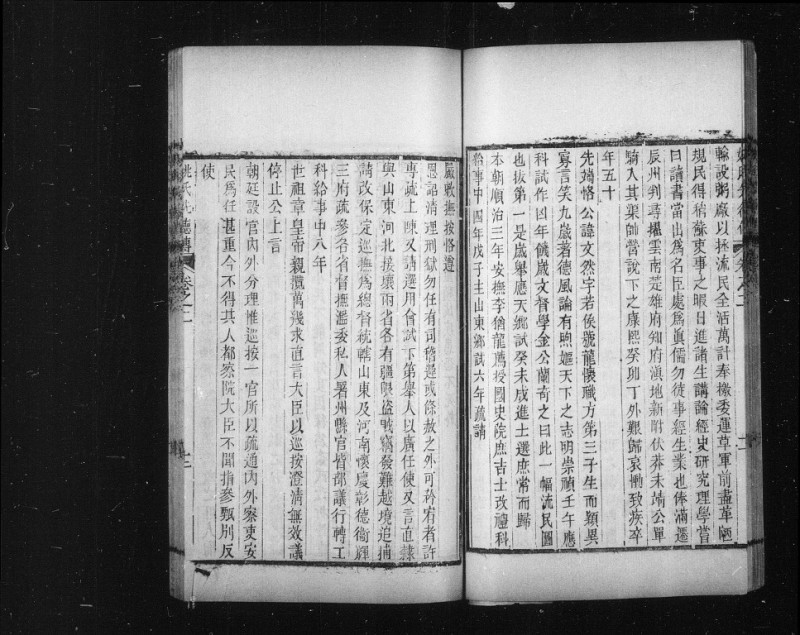 輸設粥廠以拯流民全活萬計奉檄委運草軍前盡革陋
規民得稍蘇吏事之暇日進諸生講論經史研究理學嘗
曰讀書當出爲名臣處爲眞儒勿徒事經生業也俸滿遷
辰州判尋擢雲南楚雄府知府滇地新附伏莽未靖公單
騎入其巢帥嘗說下之康熙癸卯丁外艱歸哀慟致疾卒
年五十
先端恪公諱文然字若侯號龍懷職方第三子生而穎異
寡言笑九歲著德風論有煦嫗天下之志明崇禎壬午應
科試作凶年饑歲文督學金公蘭奇之曰此一幅流民圖
也拔第一是歲舉應天鄉試癸未成進士選庶常而歸
本朝順治三年安撫李猶龍薦授國史院庶吉士改禮科
給事中四年戊子主山東鄉試六年疏請
嚴敕撫按恪遵
恩詔清理刑獄勿任有司稽遲或條赦之外可矜宥者許
專疏上陳又請選用會試下第舉人以廣任使又言直隸
與山東河北接壤兩省各有疆界盜賊竊發難越境追捕
請改保定巡撫爲總督統轄山東及河南懷慶彰德衛輝
三府疏參各省督撫濫委私人署州縣官皆部議行轉工
科給事中八年
世祖章皇帝親攬萬幾求直言大臣以巡按澄清無效議
停止公上言
朝廷設官內外分理惟巡按一官所以疏通內外察吏安
民爲任甚重今不得其人都察院大臣不聞指參甄別反
使
姚氏先德傳 卷之二